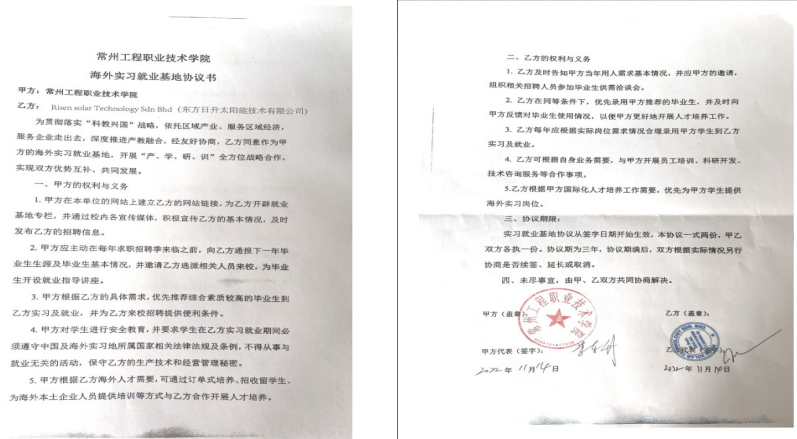 常州工程职业技术学院
海外实习就业基地协议书
甲方：常州工程职业技术学院
乙方： Risen solar Technology Sdn Bhd（东方日升太阳能技术有限公司）
为贯彻落实“科教兴国”战略，依托区域产业、服务区域经济，
服务企业走出去，深度推进产教融合，经友好协商，乙方同意作为甲
方的海外实习就业基地，开展“产、学、研、训”全方位战略合作，
实现双方优势互补、共同发展。
一、甲方的权利与义务
1. 甲方在本单位的网站上建立乙方的网站链接，为乙方开辟就业
基地专栏，并通过校内各宣传媒体，积极宣传乙方的基本情况，及时
发布乙方的招聘信息。
2. 甲方应主动在每年求职招聘季来临之前，向乙方通报下一年毕
业生生源及毕业生基本情况，并邀请乙方选派相关人员来校，为毕业
生开设就业指导讲座。
3. 甲方根据乙方的具体需求，优先推荐综合素质较高的毕业生到
乙方实习及就业，并为乙方来校招聘提供便利条件。
4. 甲方对学生进行安全教育，并要求学生在乙方实习就业期间必
须遵守中国及海外实习地所属国家相关法律法规及条例，不得从事与
就业无关的活动，保守乙方的生产技术和经营管理秘密。
5. 甲方根据乙方海外人才需要，可通过订单式培养、招收留学生、
为海外本土企业人员提供培训等方式与乙方合作开展人才培养。
二、乙方的权利与义务
1. 乙方及时告知甲方当年用人需求基本情况，并应甲方的邀请，
组织相关招聘人员参加毕业生供需洽谈会。
2. 乙方在同等条件下，优先录用甲方推荐的毕业生，并及时向
甲方反馈对毕业生使用情况，以便甲方更好地开展人才培养工作。
3. 乙方每年应根据实际岗位需求情况合理录用甲方学生到乙方
实习及就业。
4. 乙方可根据自身业务需要，与甲方开展员工培训、科研开发、
技术咨询服务等合作事项。
5.乙方根据甲方国际化人才培养工作需要，优先为甲方学生提供
海外实习岗位。
三、协议期限：
实习就业基地协议从签字日期开始生效，本协议一式两份，甲乙
双方各执一份。协议期为三年，协议期满后，双方根据实际情况另行
协商是否续签、延长或取消。
四、未尽事宜，由甲、乙双方共同协商解决。
甲方（盖章）： 乙方（盖章）：
常州工程职业技术学院
甲方代表（签字）： 乙方代表（签字）：
2022年 11月14日 2022年 11月10日